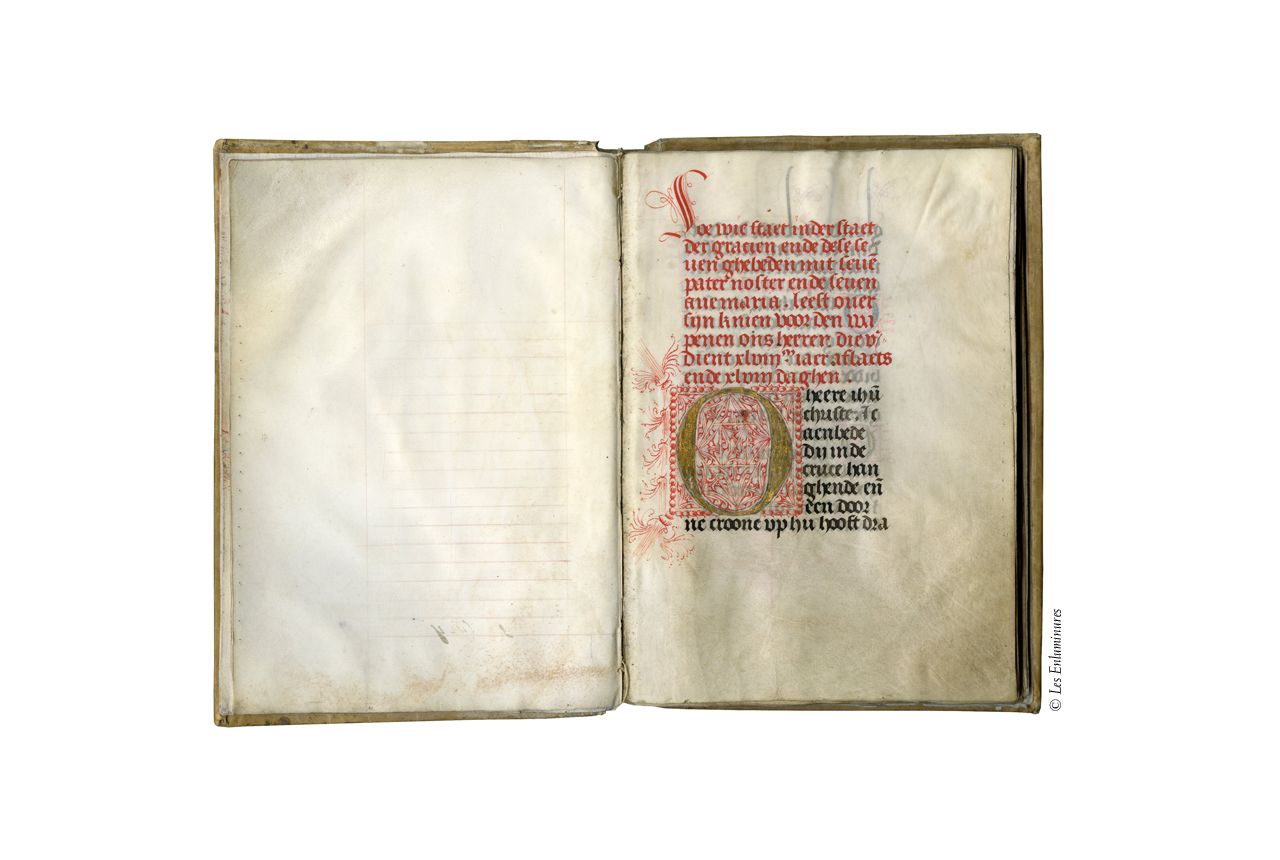 Soe wie staet in der staet
der gracien ende dese se
uen ghebeden mit seuē
pater noster ende seuen
aue maria. leest ouer
sijn knien voor den wa
penen ons heeren die v̾
dient xlvjm jaer aflaets
ende xlvj daghen.
O heere ihū
christe. Ic
aenbede
dij in de
cruce han
ghende eñ
een door
ne croone vp hu hooft dra
© Les Enluminures